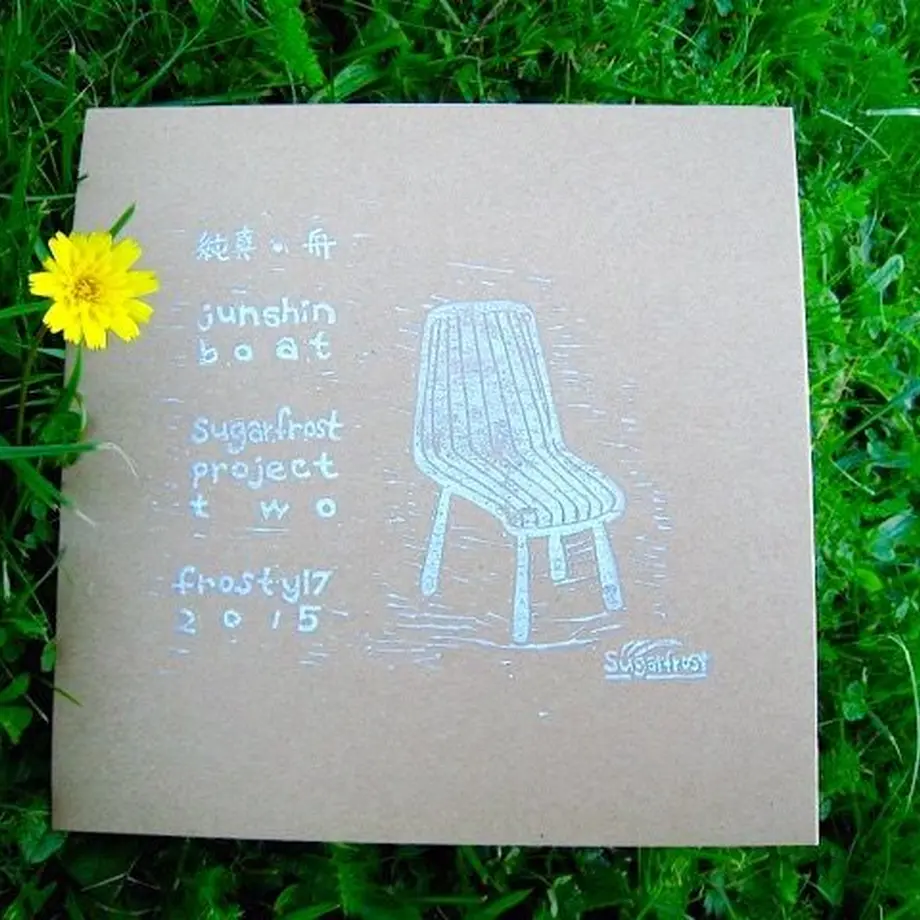 純真の舟
junshin
boat
sugarfrost
project
two
frosty17
2015
Sugarfrost